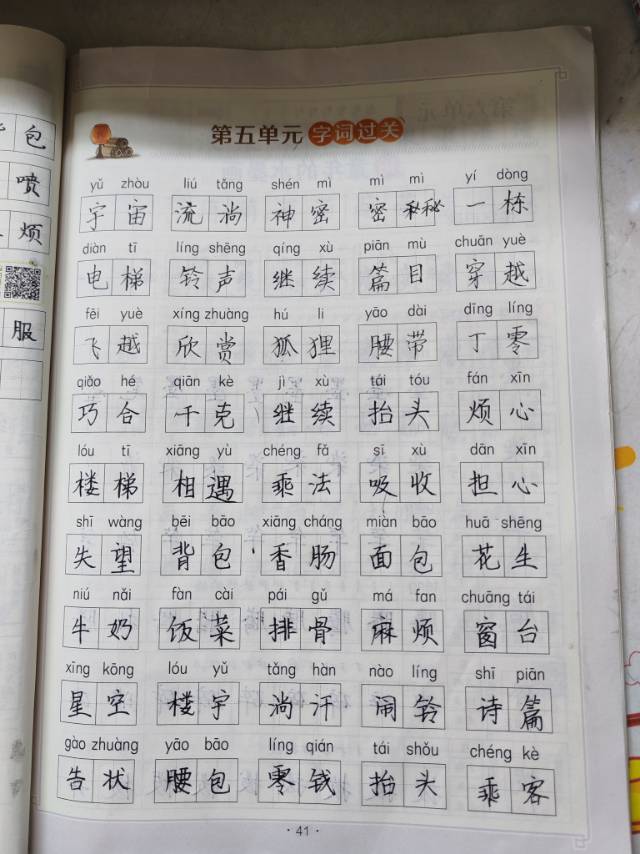 包
喷
烦
服
第五单元 字词过关
yǔ zhòu liú tǎng shén mì mì mì yí dòng
宇宙 流淌 神密 密秘 一栋
diàn tī líng shēng qíng xù piān mù chuān yuè
电梯 铃声 继续 篇目 穿越
fēi yuè xíng zhuàng hú li yāo dài dīng líng
飞越 欣赏 狐狸 腰带 丁零
qiǎo hé qiān kè jì xù tái tóu fán xīn
巧合 千克 继续 抬头 烦心
lóu tī xiāng yù chéng fǎ sī xù dān xīn
楼梯 相遇 乘法 吸收 担心
shī wàng bēi bāo xiāng cháng miàn bāo huā shēng
失望 背包 香肠 面包 花生
niú nǎi fàn cài pái gǔ má fan chuāng tái
牛奶 饭菜 排骨 麻烦 窗台
xīng kōng lóu yǔ tǎng hàn nào líng shī piān
星空 楼宇 淌汗 闹铃 诗篇
gào zhuàng yāo bāo líng qián tái shǒu chéng kè
告状 腰包 零钱 抬头 乘客
·41·